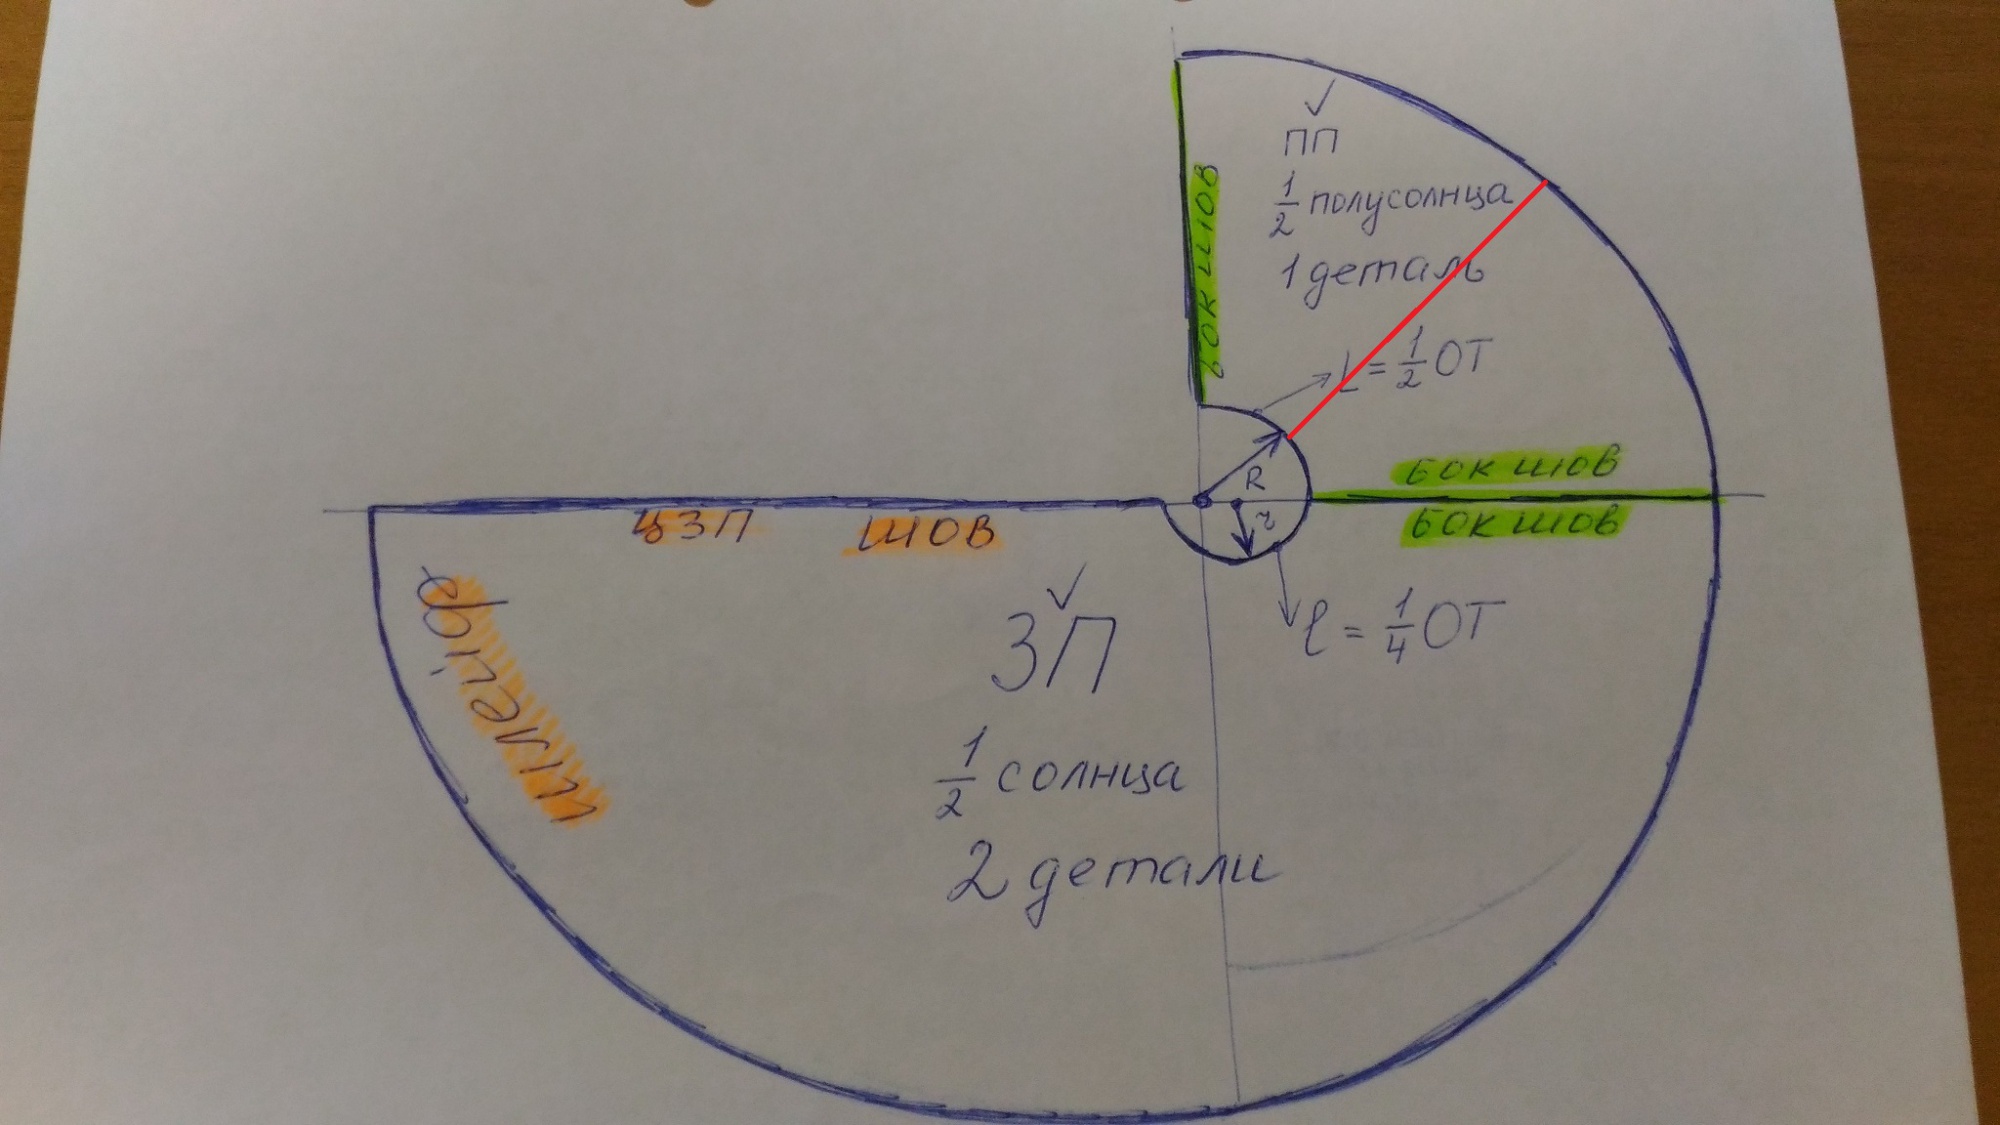 ПП
1/2 полусолнца
1 деталь
бок шов
L = 1/2 ОТ
R
бок шов
бок шов
r
ЦЗП шов
l = 1/4 ОТ
шлейф
ЗП
1/2 солнца
2 детали